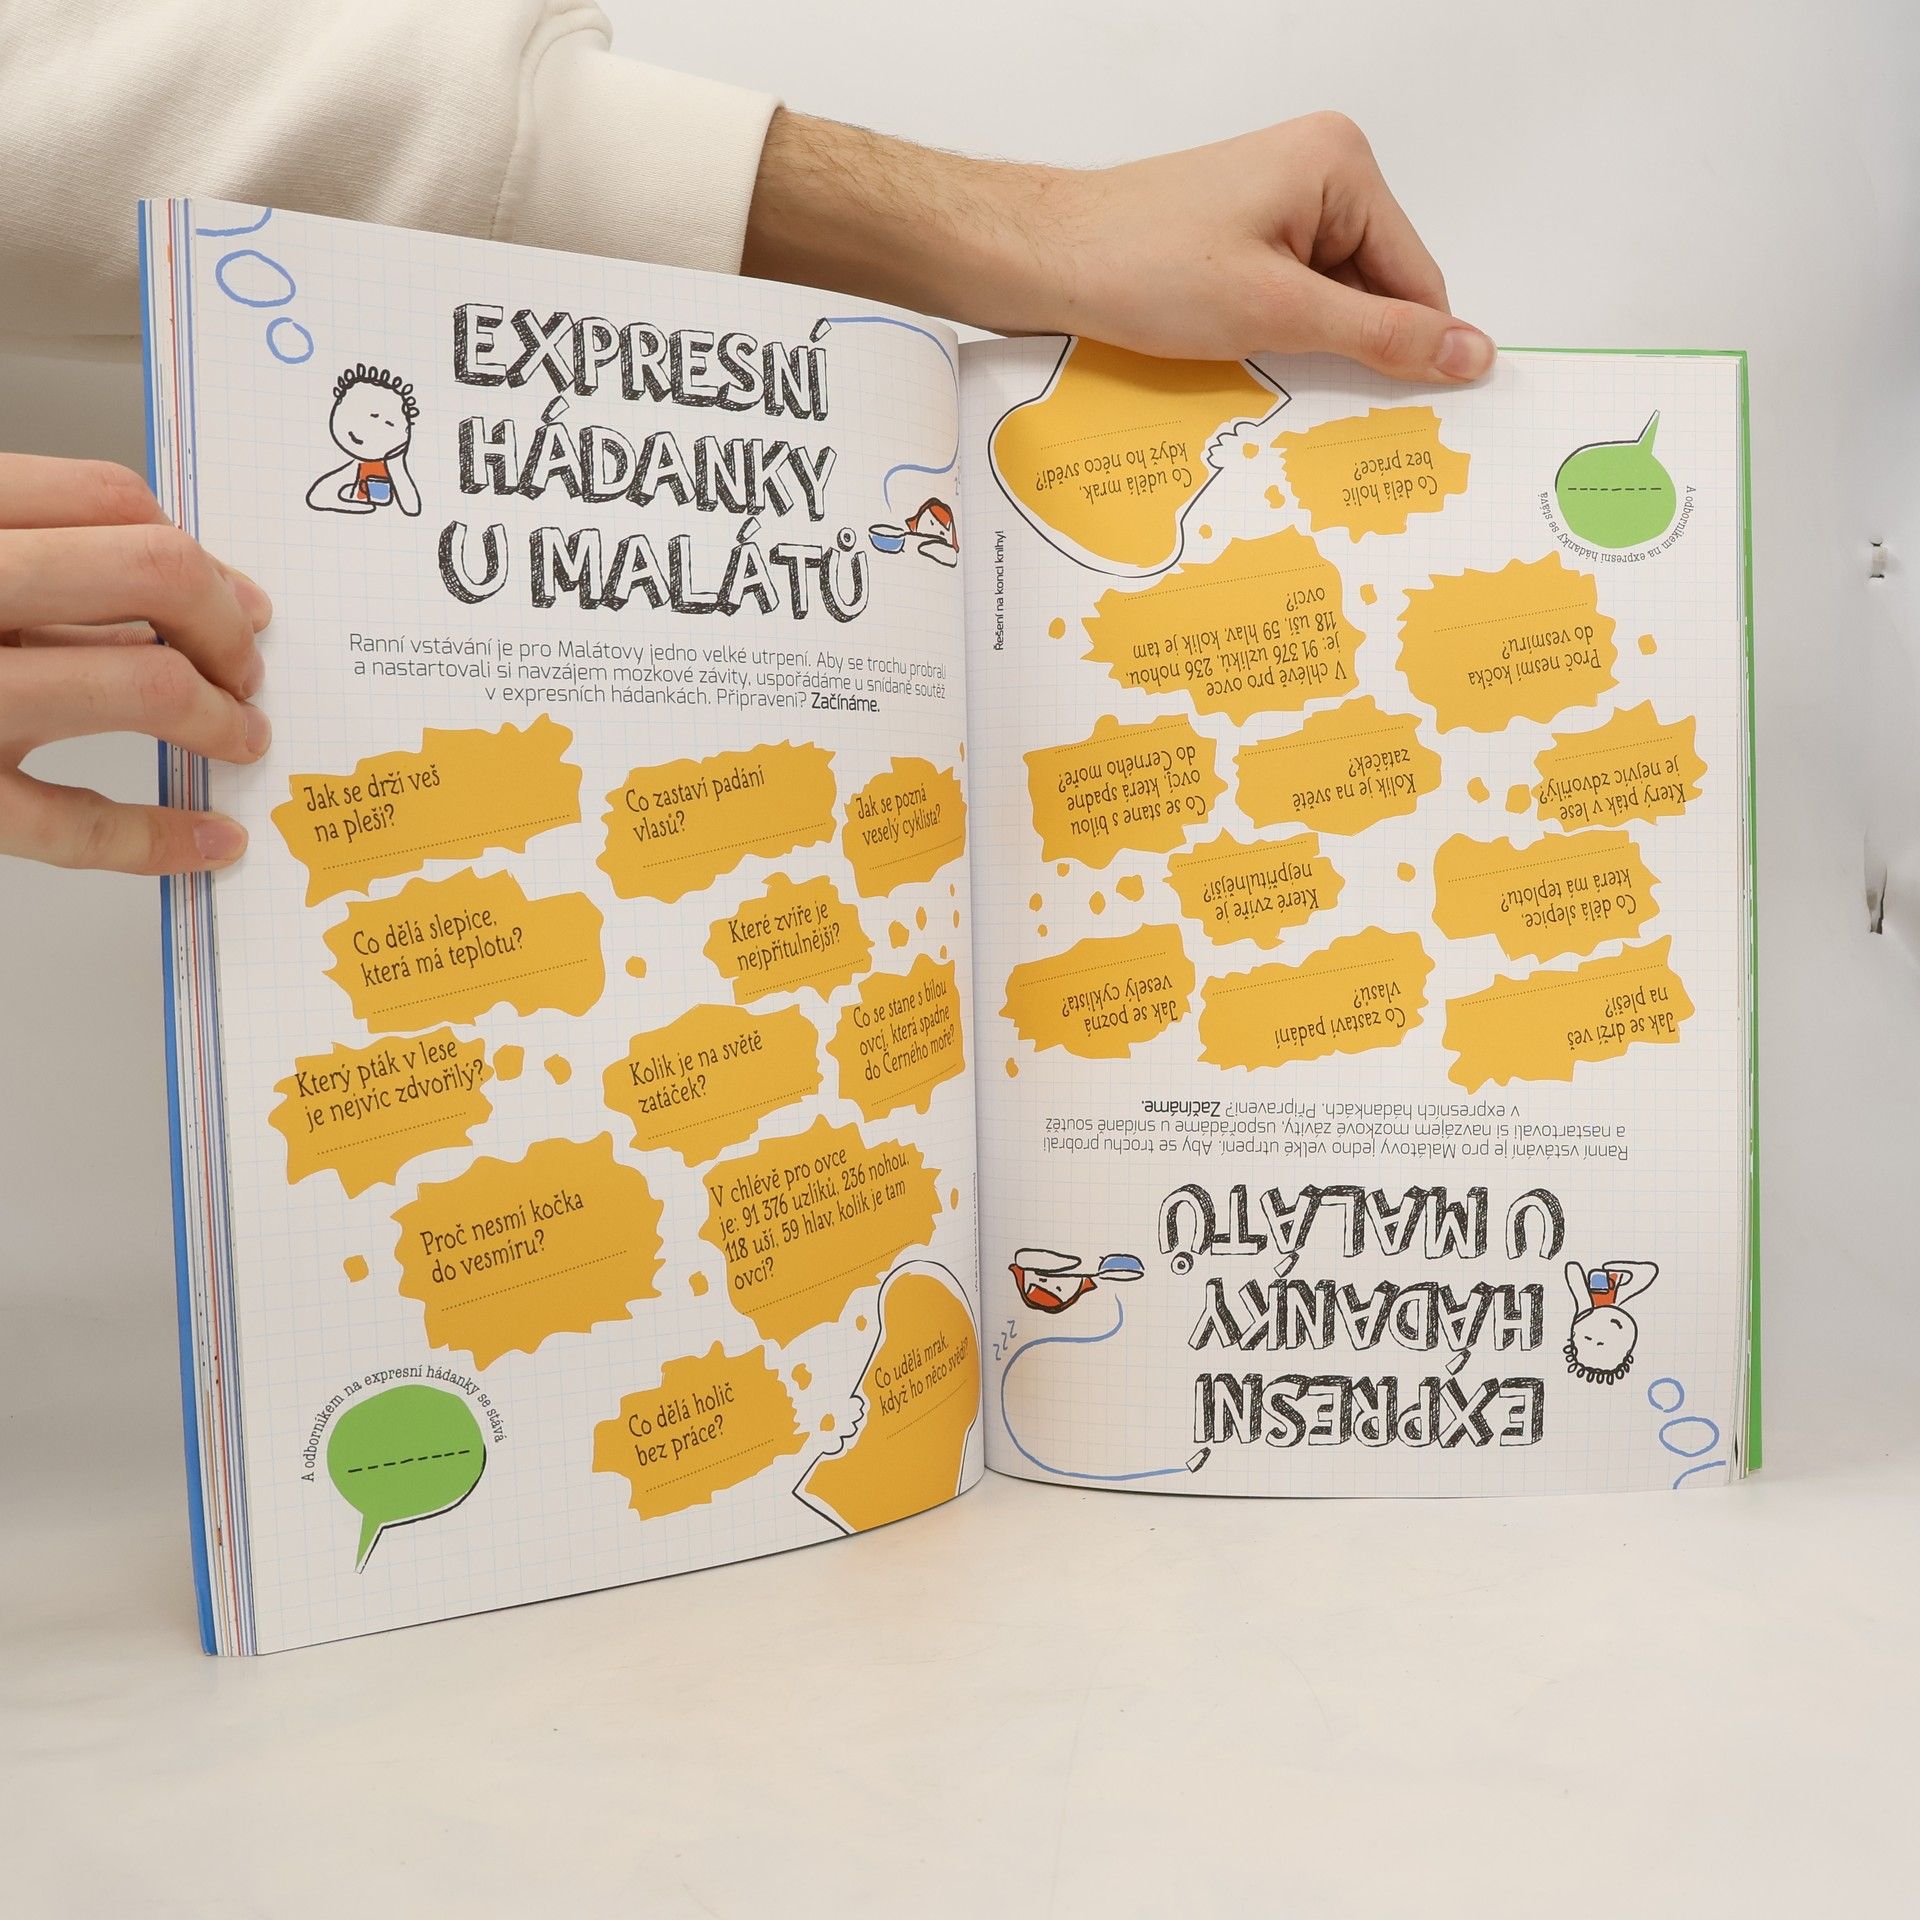 EXPRESNÍ
HÁDANKY
U MALÁTŮ
Ranní vstávání je pro Malátovy jedno velké utrpení. Aby se trochu probrali
a nastartovali si navzájem mozkové závity, uspořádáme u snídaně soutěž
v expresních hádankách. Připraveni? Začínáme.
Jak se drží veš
na pleši?
Co zastaví padání
vlasů?
Jak se pozná
veselý cyklista?
Co dělá slepice,
která má teplotu?
Které zvíře je
nejpřítulnější?
Který pták v lese
je nejvíc zdvořilý?
Kolik je na světě
zatáček?
Co se stane s bílou
ovcí, která spadne
do Černého moře?
Proč nesmí kočka
do vesmíru?
V chlévě pro ovce
je: 91 376 uzlíků, 236 nohou,
118 uší, 59 hlav, kolik je tam
ovcí?
Co dělá holič
bez práce?
Co udělá mrak,
když ho něco svědí?
A odborníkem na expresní hádanky se stává
EXPRESNÍ
HÁDANKY
U MALÁTŮ
zzz
Ranní vstávání je pro Malátovy jedno velké utrpení. Aby se trochu probrali
a nastartovali si navzájem mozkové závity, uspořádáme u snídaně soutěž
v expresních hádankách. Připraveni? Začínáme.
Jak se drží veš
na pleši?
Co zastaví padání
vlasů?
Jak se pozná
veselý cyklista?
Co dělá slepice,
která má teplotu?
Které zvíře je
nejpřítulnější?
Který pták v lese
je nejvíc zdvořilý?
Kolik je na světě
zatáček?
Co se stane s bílou
ovcí, která spadne
do Černého moře?
Proč nesmí kočka
do vesmíru?
V chlévě pro ovce
je: 91 376 uzlíků, 236 nohou,
118 uší, 59 hlav, kolik je tam
ovcí?
Co dělá holič
bez práce?
Co udělá mrak,
když ho něco svědí?
A odborníkem na expresní hádanky se stává
Řešení na konci knihy!